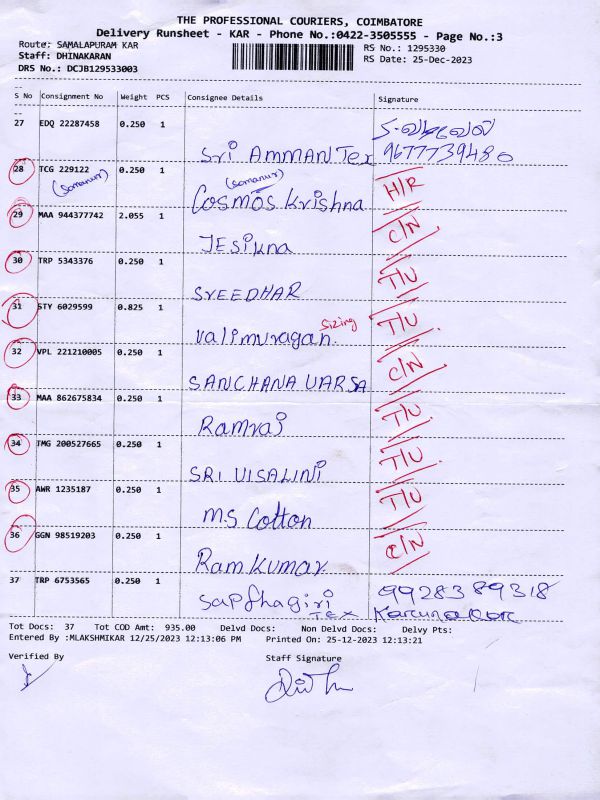 THE PROFESSIONAL COURIERS, COIMBATORE
Delivery Runsheet - KAR - Phone No.:0422-3505555 - Page No.:3
Route: SAMALAPURAM KAR
RS No.: 1295330
Staff: DHINAKARAN
RS Date: 25-Dec-2023
DRS No.: DCJB129533003
S No Consignment No Weight PCS Consignee Details Signature
27 EDQ 22287458 0.250 1
Sri AMMAN Tex 9677739480
28 TCG 229122 0.250 1
(Somanur) (Somanur)
Cosmos Krishna H/R
29 MAA 944377742 2.055 1
JESikna C/N
30 TRP 5343376 0.250 1
SREEDHAR T/U
31 STY 6029599 0.825 1
Valimuragan Sizing T/U
32 VPL 221210005 0.250 1
SANCHANA VARSA C/N
33 MAA 862675834 0.250 1
Ramraj T/U
34 TMG 200527665 0.250 1
SRI VISALINI T/U
35 AWR 1235187 0.250 1
MS Cotton T/U
36 GGN 98519203 0.250 1
Ram Kumar C/N
37 TRP 6753565 0.250 1
Sapthagiri 9928389318
Tex Karunakara
Tot Docs: 37 Tot COD Amt: 935.00 Delvd Docs: Non Delvd Docs: Delvy Pts:
Entered By :MLAKSHMIKAR 12/25/2023 12:13:06 PM Printed On: 25-12-2023 12:13:21
Verified By Staff Signature